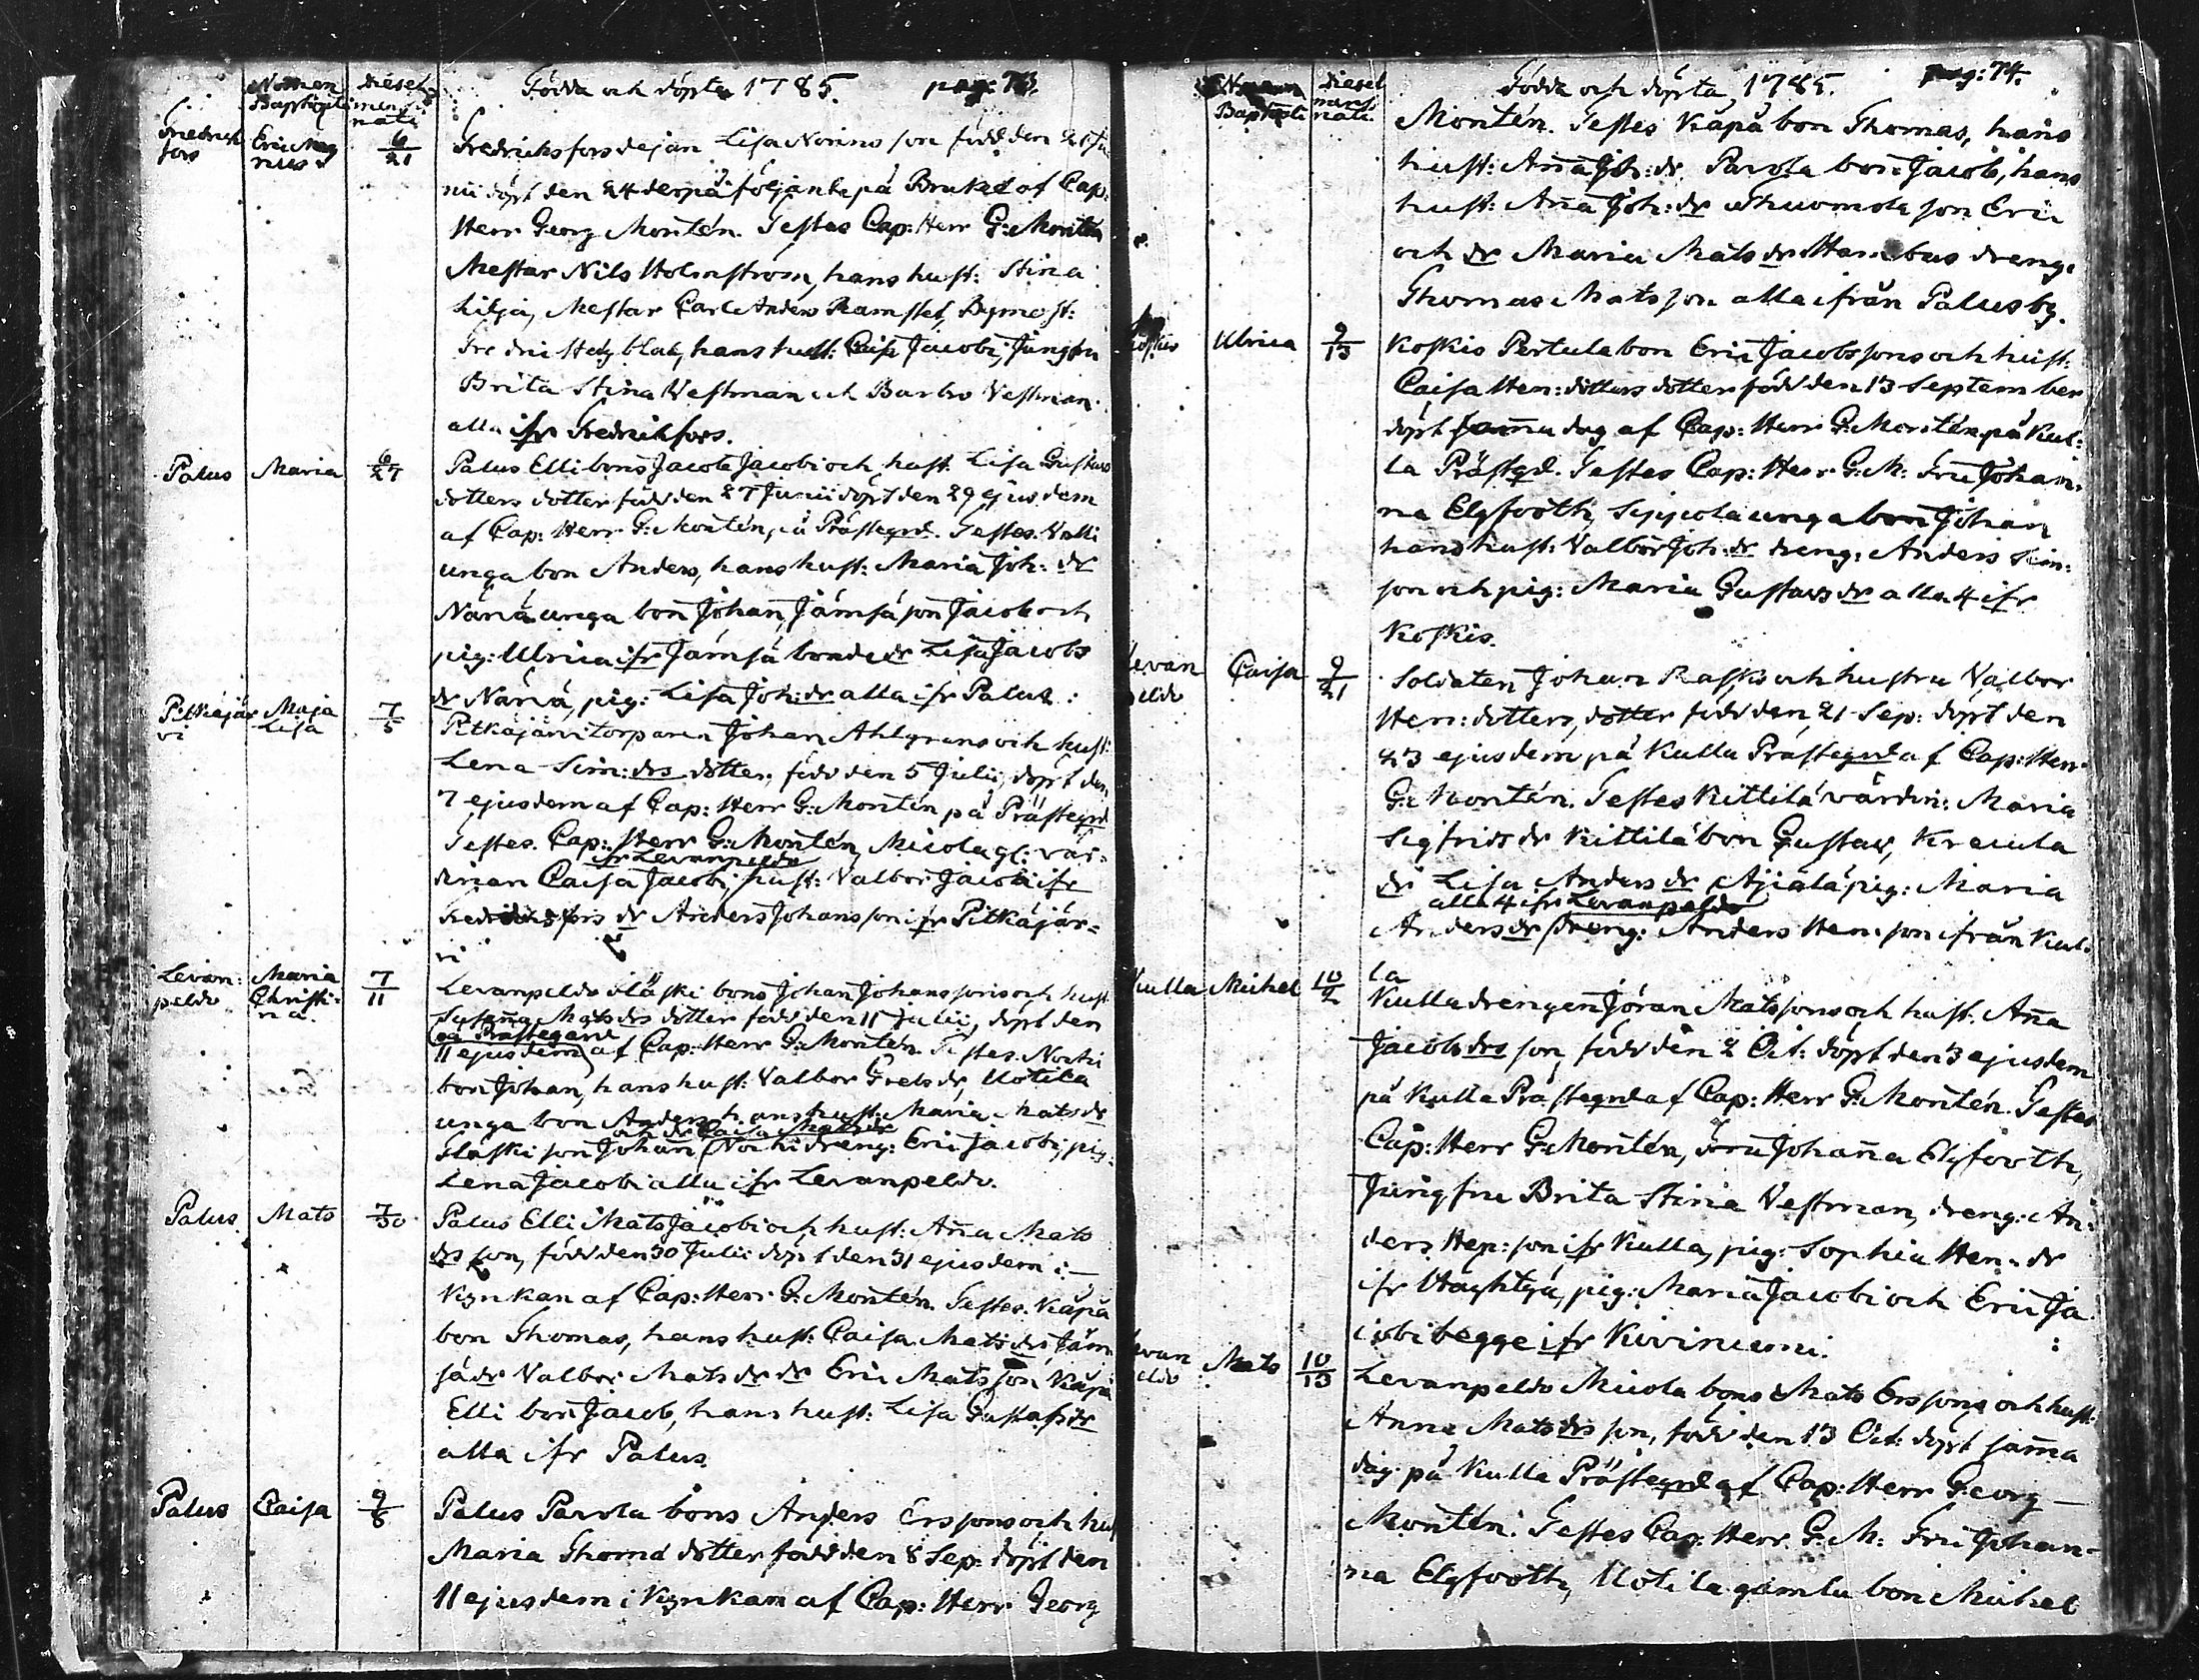 Nomen Baptisti
Dies et mensis nati
Födda och döpta 1785. pag: 73.
Friedrich fors
Eric Mag nus
6/21
Fredricksfors dejan Lisa Norins son född den 21 Ju
nii döpt den 24 derpå följande på Bruket af Cap:
Herr Georg Montén. Testes Cap: Herr G: Montén
Mestar Nils Holmström, hans hust: Stina
Lilja, Mestar Carl Anders Ramstet, Bymost:
hans hust: Caisa Jacobi, Jungfru
Brita Stina Vestman och Barbro Vestman
alla ifr Fredrikfors.
Palus
Maria
6/27
Palus Elli bons Jacob Jacobi och hust Lisa Gustavs
dotters dotter född den 27 Junii döpt den 29 ejusdem
af Cap: Herr G: Montén, på Prästegrd. Testes. Valli
unga bon Anders, hans hust: Maria Joh: dr
Nänä unga bon Johan, Jämsä son Jacob och
pig: Ulrica ifr Jämsä bonde dr Lisa Jacobs
dr Nänä, pig: Lisa Joh: dr alla ifr Palus:
Pitkäjär vi
Maja Lisa
7/5
Pitkäjärvi torparen Johan Ahlgrens och hust:
Lena Sim: drs dotter, född den 5 Julii, döpt den
7 ejusdem af Cap: Herr G: Montén på Prästegrd
Testes. Cap: Herr G: Montén, Micola gl: vär-
ifr Levanpeldo
dinan Caisa Jacobi, hust: Valbor Jacobi ifr
Fredriksfors dr Anders Johansson ifr Pitkäjär-
vi
Levan: peldo
Maria Christi: na.
7/11
Levanpeldo Släski bons Johan Johanssons och hust
Susanna Mats drs dotter född den 11 Julii, döpt den
på Prästegård
11 ejusdem af Cap: Herr G: Montén. Testes. Nocki
bon Johan, hans hust: Valbor Grels dr, Uotila
unga bon Anders hans hust: Maria Mats dr
och dr Caisa Mats dr
Släski son Johan Nocki dreng: Eric Jacobi, pig:
Lena Jacobi alla ifr Levanpeldo.
Palus
Mats
7/30
Palus Elli Mats Jacobi och hust: Anna Mats
drs son, född den 30 Julii döpt den 31 ejusdem i
Kyrkan af Cap: Herr G: Montén. Testes. Käpä
bon Thomas, hans hust: Caisa Mats dr, Jäm
sä dr Valbor Mats dr dr Eric Matsson Käpä
Elli bon Jacob, hans hust: Lisa Gustafs dr
alla ifr Palus.
Palus
Caisa
9/8
Palus Parola bons Anders Erssons och hust
Maria Thoma dotter född den 8 Sep: döpt den
11 ejusdem i Kyrkan af Cap: Herr Georg
Nomen Baptisti
Dies et mensis nati
Födda och döpta 1785. pag: 74.
Montén. Testes Käpä bon Thomas, hans
hust: Anna Joh: dr Parola bon Jacob, hans
hust: Anna Joh: dr Thuomola son Eric
och dr Maria Mats dr dreng:
Thomas Matsson alla ifrån Palus by.
Koskis
Ulrica
9/13
Koskis Pertula bon Eric Jacobssons och hust:
Caisa Hen: dotters dotter född den 13 September
döpt samma dag af Cap: Herr G: Montén på Kul:
la Prästgrd. Testes Cap: Herr G: M: Fru Johan-
na Elgfooth, Seppola unga bon Johan
hans hust: Valbor Joh: dr dreng: Anders Sim:
son och pig: Maria Gustavs dr alla 4 ifr
Koskis.
Levan peldo
Caisa
9/21
Soldaten Johan Rask och hustru Valbor
Hen: dotters, dotter född den 21 Sep: döpt den
23 ejusdem på Kulla Prästegrd af Cap: Herr
G: Montén. Testes Kittilä värdin: Maria
Sigfrids dr Kittilä bon Gustav, Kraula
dr Lisa Anders dr Äjälä pig: Maria
alla 4 ifr Levanpeldo
Anders dr dreng: Anders Hen: son ifrån Kul-
la
Kulla
Michel
10/2
Kulla drengen Jöran Matssons och hust: Anna
Jacobs drs son, född den 2 Oct: döpt den 3 ejusdem
på Kulla Prästegrd af Cap: Herr G: Montén. Testes
Cap: Herr G: Montén, Fru Johanna Elgfooth,
Jungfru Brita Stina Vestman, dreng: An-
ders Hen: son ifr Kulla, pig: Sophia Hen: dr
ifr pig: Maria Jacobi och Eric Ja
cobi begge ifr Kiviniemi.
Levan peldo
Mats
10/13
Levanpeldo Micola bons Mats Erssons och hust:
Anna Mats drs son, född den 13 Oct: döpt samma
dag på Kulla Prästegrd af Cap: Herr Georg
Montén. Testes Cap: Herr G: M: Fru Johan-
na Elgfooth, Uotila gamla bon Michel